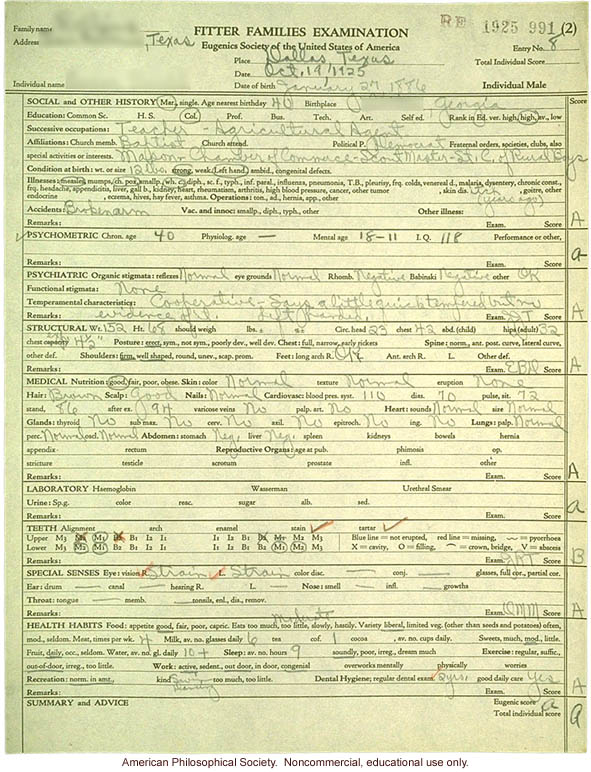 RF 1925 991 (2)
Family name FITTER FAMILIES EXAMINATION
Address , Texas Eugenics Society of the United States of America Entry No. 8
Place Dallas, Texas Total Individual Score
Date Oct. 19/1925
Individual name Date of birth January 27, 1886 Individual Male
SOCIAL and OTHER HISTORY Mar., single. Age nearest birthday 40 Birthplace Georgia Score
Education: Common Sc. H. S. Col. Prof. Bus. Tech. Art. Self ed. Rank in Ed. ver. high, high, av., low
Successive occupations: Teacher - Agricultural Agent
Affiliations: Church memb. Baptist Church attend. Political P. Democrat Fraternal orders, societies, clubs, also
special activities or interests. Mason - Chamber of Commerce - Scout Master - of Rural Boys
Condition at birth: wt. or size 12 lbs. strong, weak, (Left hand) ambid., congenital defects.
Illnesses: measles, mumps, ch. pox, smallp., wh. c., diph., sc. f., typh., inf. paral., influenza, pneumonia, T.B., pleurisy, frq. colds, venereal d., malaria, dysentery, chronic const.,
frq. headache, appendicitis, liver, gall b., kidney, heart, rheumatism, arthritis, high blood pressure, cancer, other tumor , skin dis. , goitre, other
endocrine , eczema, hives, hay fever, asthma. Operations: ton., ad., hernia, app., other (years ago)
Accidents: Broken arm Vac. and innoc: smallp., diph., typh., other Other illness:
Remarks: Exam. Score A
PSYCHOMETRIC Chron. age 40 Physiolog. age — Mental age 18-11 I. Q. 118 Performance or other,
Remarks: Exam. Score a
PSYCHIATRIC Organic stigmata: reflexes Normal eye grounds Normal Rhomb. Negative Babinski Negative other OK
Functional stigmata: None
Temperamental characteristics: Cooperative - Says a little quick tempered but no
Remarks: evidence of it. left handed. Exam. Score A
STRUCTURAL Wt. 152 Ht. 68 should weigh lbs. Circ. head 23 chest 42 abd. (child) hips (adult) 32
chest Posture: erect, sym., not sym., poorly dev., well dev. Chest: full, narrow, early rickets Spine: norm., ant. post. curve, lateral curve,
other def. Shoulders: firm, well shaped, round, unev., scap. prom. Feet: long arch R. OK Ant. arch R. L. Other def.
Remarks: Exam. Score A
MEDICAL Nutrition: good, fair, poor, obese. Skin: color Normal texture Normal eruption None
Hair: Brown Scalp: Good Nails: Normal Cardiovasc: blood pres. syst. 110 dias. 70 pulse, sit. 72
stand, 86 after ex. 94 varicose veins No palp. art. No Heart: sounds Normal size Normal
Glands: thyroid No sub max. No cerv. No axil. No epitroch. No ing. No Lungs: palp. Normal
perc. Normal oscl. Normal Abdomen: stomach Neg. liver Neg. spleen kidneys bowels hernia
appendix rectum Reproductive Organs: age at pub. phimosis op.
stricture testicle scrotum prostate infl. other
Remarks: Exam. Score A
LABORATORY Haemoglobin Wasserman Urethral Smear
Urine: Sp.g. color reac. sugar alb. sed.
Remarks: Exam. Score a
TEETH Alignment arch enamel stain ✓ tartar ✓
Upper M3 M2 M1 B2 B1 I2 I1 I1 I2 B1 B2 M1 M2 M3 Blue line = not erupted, red line = missing, = pyorrhoea
Lower M3 M2 M1 B2 B1 I2 I1 I1 I2 B1 B2 M1 M2 M3 X = cavity, O = filling, = crown, bridge, V = abscess
Remarks: Exam. Score B
SPECIAL SENSES Eye: vision R. Strain L. Strain color disc. — conj. — glasses, full cor., partial cor.
Ear: drum — canal — hearing R. — L. — Nose: smell — infl. — growths
Throat: tongue — memb. tonsils, enl., dis., remov.
Remarks: Exam. OMM Score A
HEALTH HABITS Food: appetite good, fair, poor, capric. Eats too much, too little, slowly, hastily. Variety liberal, limited veg. (other than seeds and potatoes) often,
Moderate
mod., seldom. Meat, times per wk. 4 Milk, av. no. glasses daily 6 tea cof. 1 cocoa , av. no. cups daily. Sweets, much, mod., little.
Fruit, daily, occ., seldom. Water, av. no. gl. daily 10+ Sleep: av. no. hours 9 soundly, poor, irreg., dream much Exercise: regular, suffic.,
out-of-door, irreg., too little. Work: active, sedent., out door, in door, congenial overworks mentally physically worries
Recreation: norm. in amt., kind too much, too little. Dental Hygiene; regular dental exam. 2 yrs. good daily care Yes
Remarks: Exam. Score A
SUMMARY AND ADVICE Eugenic score a
Total individual score a
American Philosophical Society. Noncommercial, educational use only.